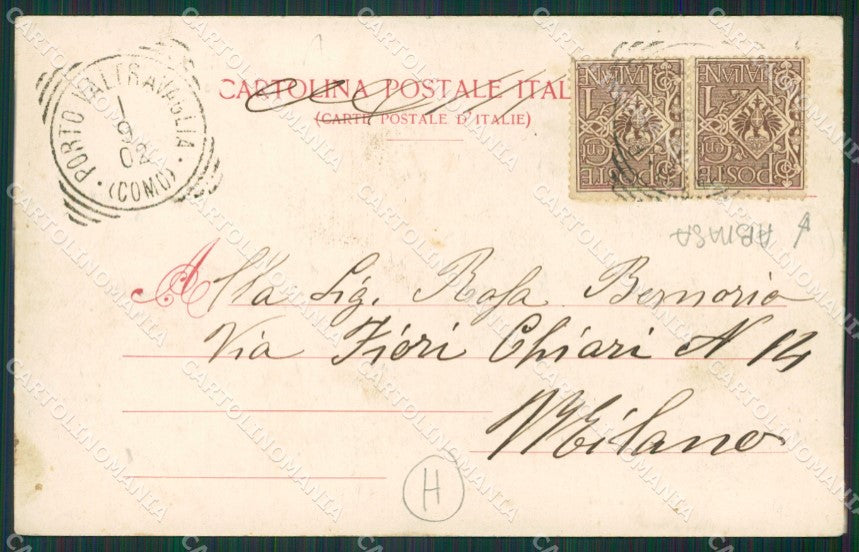 CARTOLINA POSTALE ITAL
(CARTE POSTALE D'ITALIE)
PORTO VALTRAVAGLIA
1
9
02
(COMO)
POSTE ITALIANE
CENT. 2
POSTE ITALIANE
CENT. 2
ARMASA
Alla Sig. Rosa Bernoria
Via Fiori Chiari N 14
Milano
H
CARTOLINOMANIA